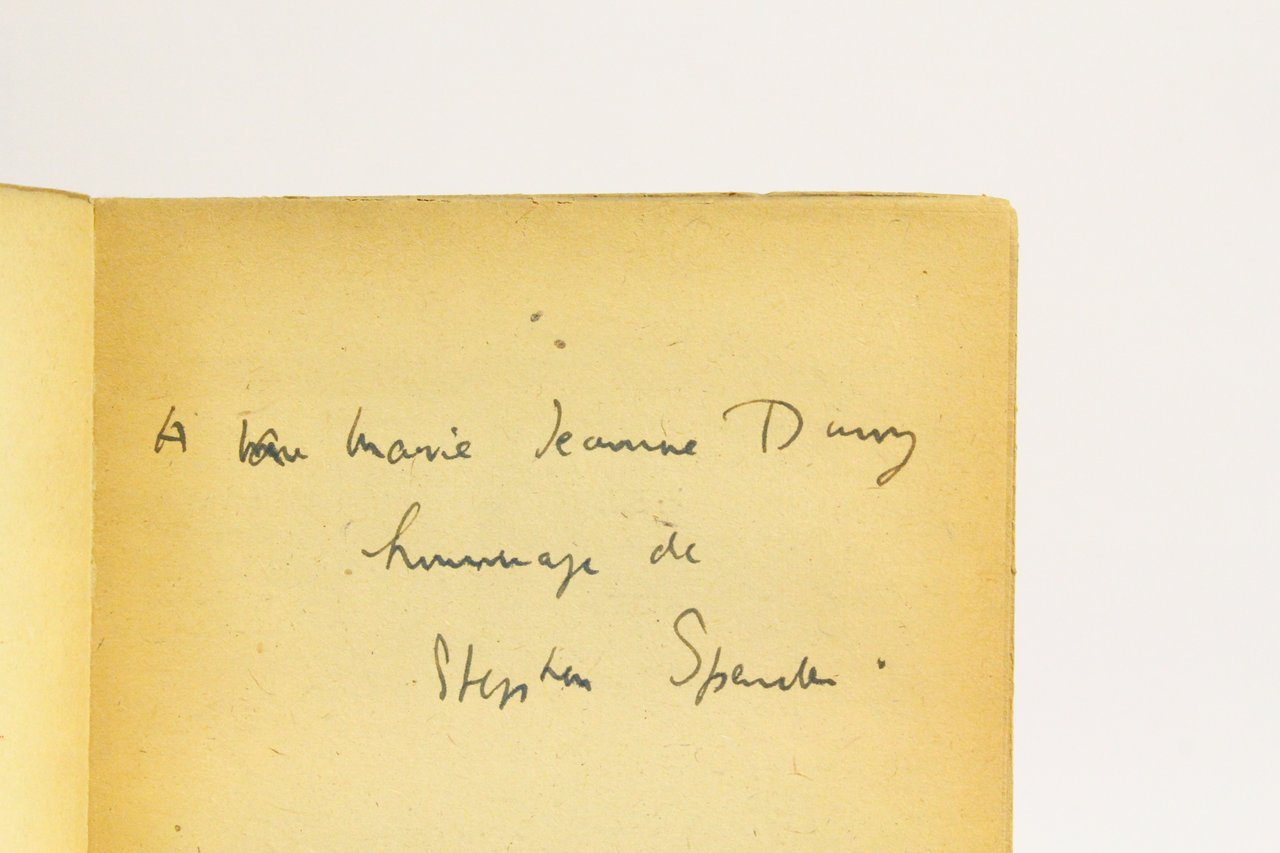 A Marie Jeanne Durry
hommage de
Stephen Spender.